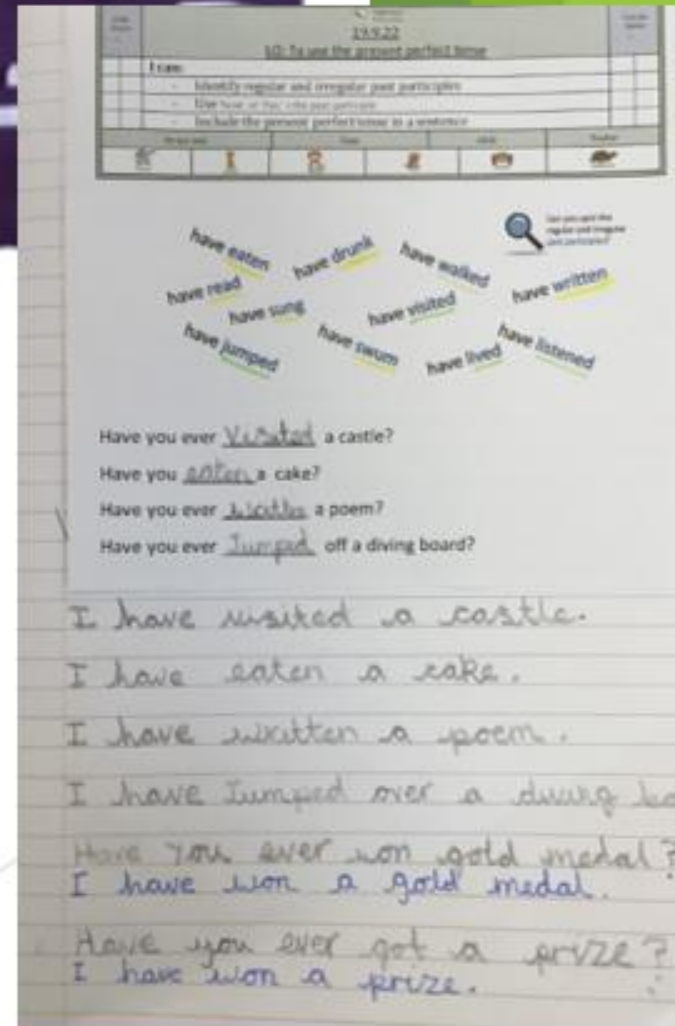 19.9.22
LO: To use the present perfect tense
I can:
- Identify regular and irregular past participles
- Use 'have' or 'has' + the past participle
- Include the present perfect tense in a sentence
Teacher
Can you spot the
regular and irregular
past participles?
have eaten
have drunk
have walked
have read
have sung
have visited
have written
have jumped
have swum
have lived
have listened
Have you ever Visited a castle?
Have you eaten a cake?
Have you ever a poem?
Have you ever Jumped off a diving board?
I have visited a castle.
I have eaten a cake.
I have written a poem.
I have Jumped over a diving bo
Have you ever won gold medal?
I have won a gold medal.
Have you ever got a prize?
I have won a prize.